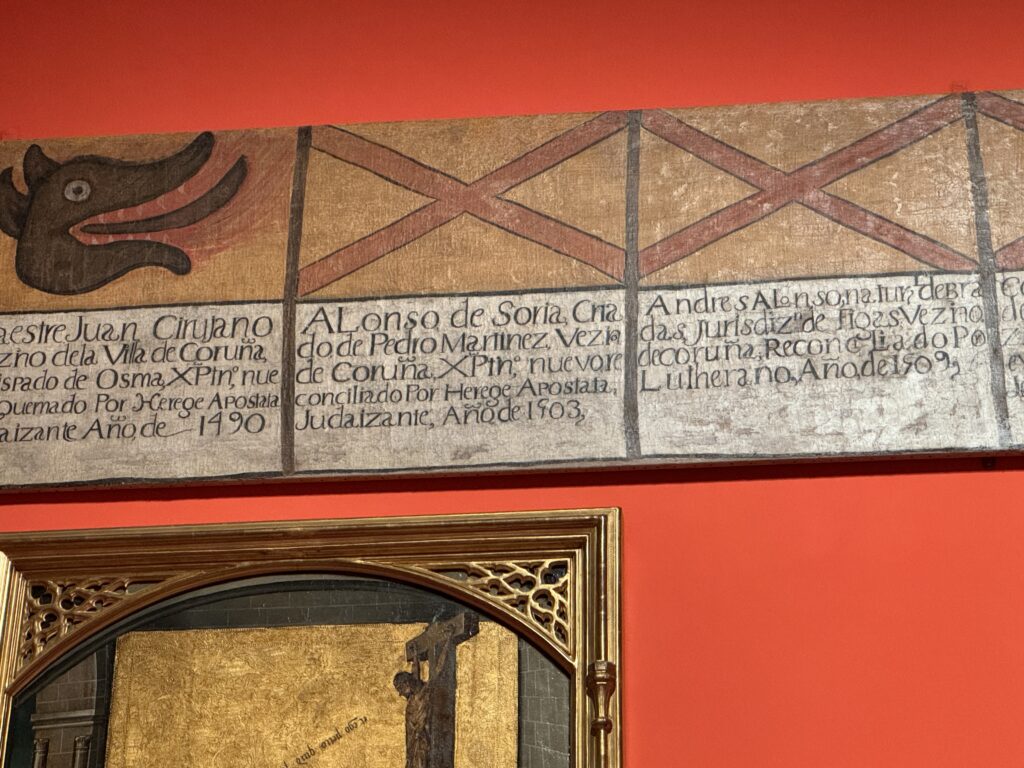 aestre Juan Cirujano
zno dela Villa de Coruña,
ispado de Osma, XPtnº nue
quemado Por Herege Apostata
aizante Año, de 1490
ALonso de Soria, Cria
do de Pedro Martinez, Vezino
de Coruña, XPtnº nuevo re
conciliado Por Herege Apostata,
Judaizante, Año, de 1503,
Andres ALonso, natur.ˡ de Bra
das, Jurisdizⁿ de Hoas, Vezino
de coruña, Reconciliado Por
Lutherano, Año, de 1509,